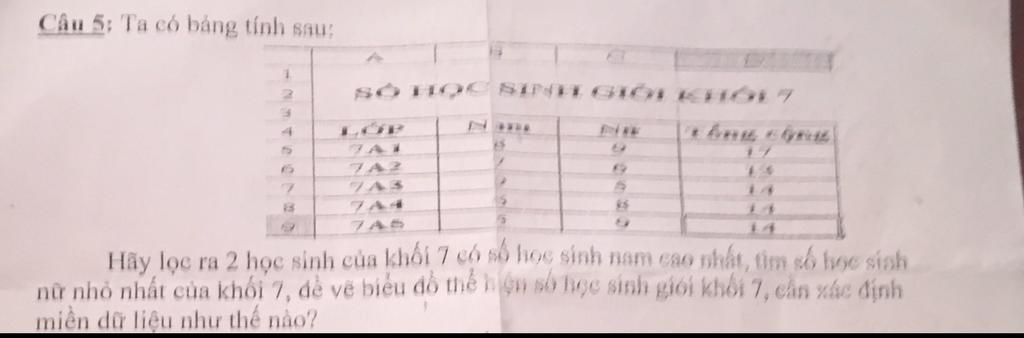 Câu 5: Ta có bảng tính sau:
A B C D
1
2 SỐ HỌC SINH GIỎI KHỐI 7
3
4 LỚP Nam Nữ Tổng cộng
5 7A1 8 9 17
6 7A2 6 13
7 7A3 14
8 7A4 8 14
9 7A5 5 9 14
Hãy lọc ra 2 học sinh của khối 7 có số học sinh nam cao nhất, tìm số học sinh
nữ nhỏ nhất của khối 7, để vẽ biểu đồ thể hiện số học sinh giỏi khối 7, cần xác định
miền dữ liệu như thế nào?